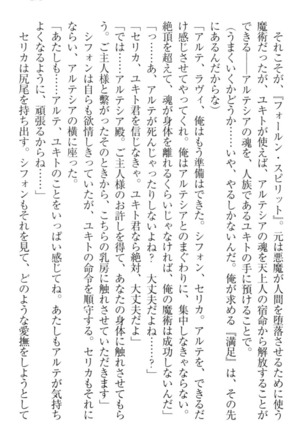 それこそが、『フォールン・スピリット』。元は悪魔が人間を堕落させるために使う
魔術だったが、ユキトが使えば、アルテシアの魂を天上人の宿命から解放することが
できる――アルテシアの魂を、人族であるユキトの手に預けることで。
（うまくいくかどうか……いや、やるしかないんだ。俺が求める『満足』は、その先
にあるんだからな）
「アルテ、ラヴィ、俺はもう準備はできた。シフォン、セリカ。アルテを、できるだ
け感じさせてやってくれ。俺はアルテシアとのまぐわりに、集中しなきゃならない。
絶頂を超えて、魂が身体を離れるくらいじゃなければ、俺の魔術は成功しないんだ」
「っ……あ、アルテが死んじゃったりしないよね？　大丈夫だよね……？」
「セリカ、ユキト君を信じなきゃ。ユキト君なら絶対、大丈夫だよ」
「では……アルテシア殿。ご主人様のお許しを得て、あなたの身体に触れさせてもら
う。ご主人様と繋がったそのときから、こちらの乳房に触れさせていただきます」
シフォンは自らも欲情しきっていたが、ユキトの命令を順守する。セリカもそれに
ならい、アルテシアの横に座った。
「あたしも……アルテ、ユキトのことをいっぱい感じてね。あたしもアルテが気持ち
よくなるように、頑張るからね……」
セリカは尻尾を持ち出す。シフォンもそれを見て、どのような愛撫をしようとして